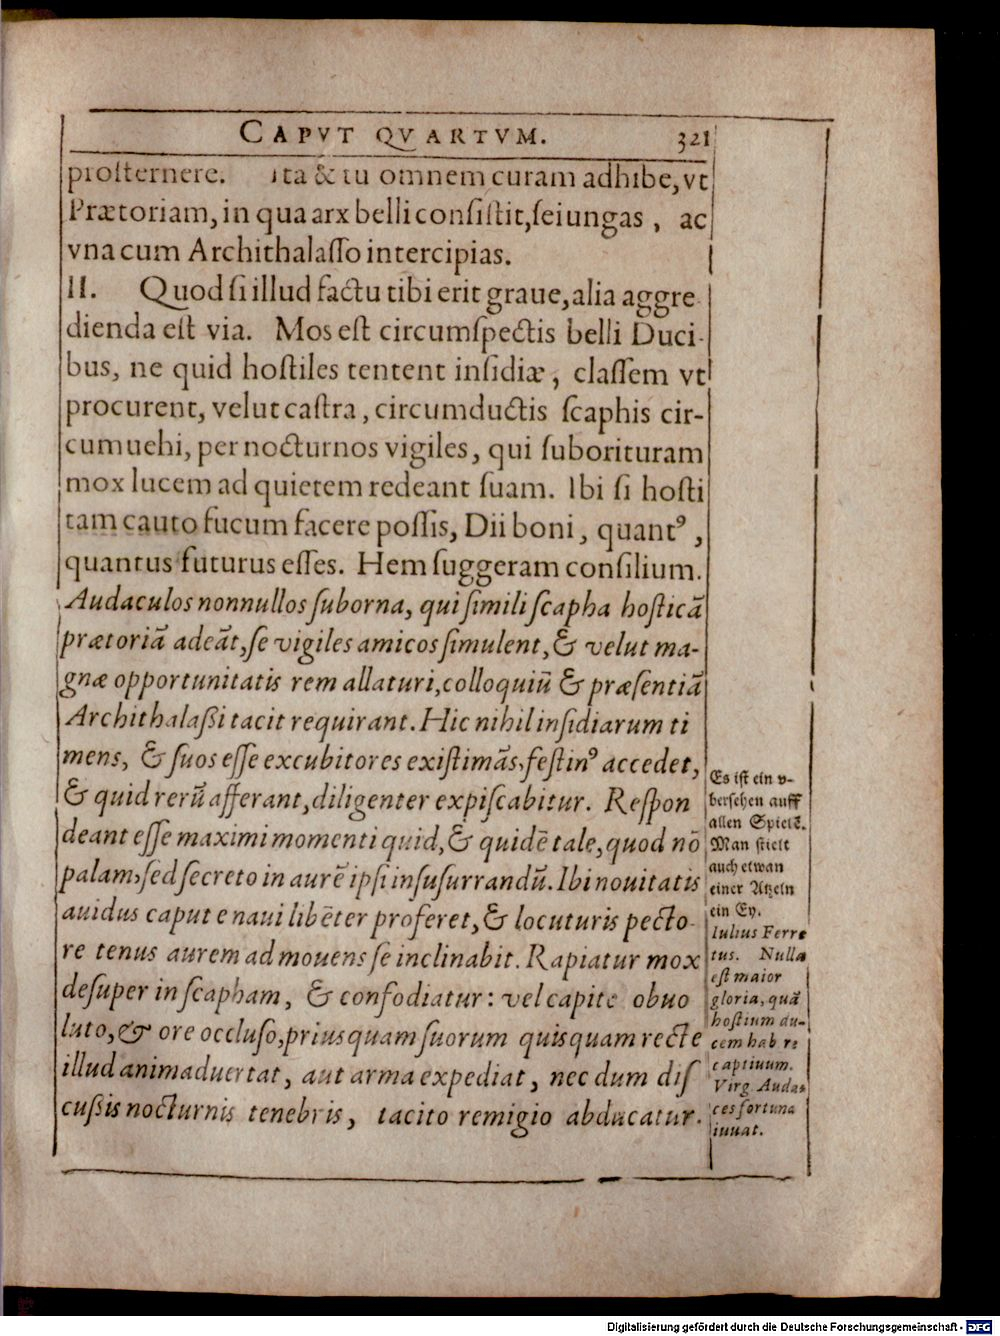 CAPVT QVARTVM. 321
prosternere. Ita & tu omnem curam adhibe, vt
Prætoriam, in qua arx belli consistit, seiungas, ac
vna cum Archithalasso intercipias.
II. Quod si illud factu tibi erit graue, alia aggre
dienda est via. Mos est circumspectis belli Duci-
bus, ne quid hostiles tentent insidiæ, classem vt
procurent, velut castra, circumductis scaphis cir-
cumuehi, per nocturnos vigiles, qui suborituram
mox lucem ad quietem redeant suam. Ibi si hosti
tam cauto fucum facere possis, Dii boni, quantꝰ,
quantus futurus esses. Hem suggeram consilium.
Audaculos nonnullos suborna, qui simili scapha hosticā
prætoriā adeāt, se vigiles amicos simulent, & velut ma-
gnæ opportunitatis rem allaturi, colloquiū & præsentiā
Archithalaßi tacit requirant. Hic nihil insidiarum ti
mens, & suos esse excubitores existimās, festinꝰ accedet,
& quid rerū afferant, diligenter expiscabitur. Respon
deant esse maximi momenti quid, & quidē tale, quod nō
palam, sed secreto in aurē ipsi insusurrandū. Ibi nouitatis
auidus caput e naui libēter proferet, & locuturis pecto-
re tenus aurem admouens se inclinabit. Rapiatur mox
desuper in scapham, & confodiatur: vel capite obuo
luto, & ore occluso, priusquam suorum quisquam recte
illud animaduertat, aut arma expediat, nec dum dis
cußis nocturnis tenebris, tacito remigio abducatur.
Es ist ein v-
bersehen auff
allen Spielē.
Man stielt
auch etwan
einer Atzeln
ein Ey.
Iulius Ferre
tus. Nulla
est maior
gloria, quā
hostium du-
cem hab re
captiuum.
Virg. Auda-
ces fortuna
iuuat.
Digitalisierung gefördert durch die Deutsche Forschungsgemeinschaft - DFG